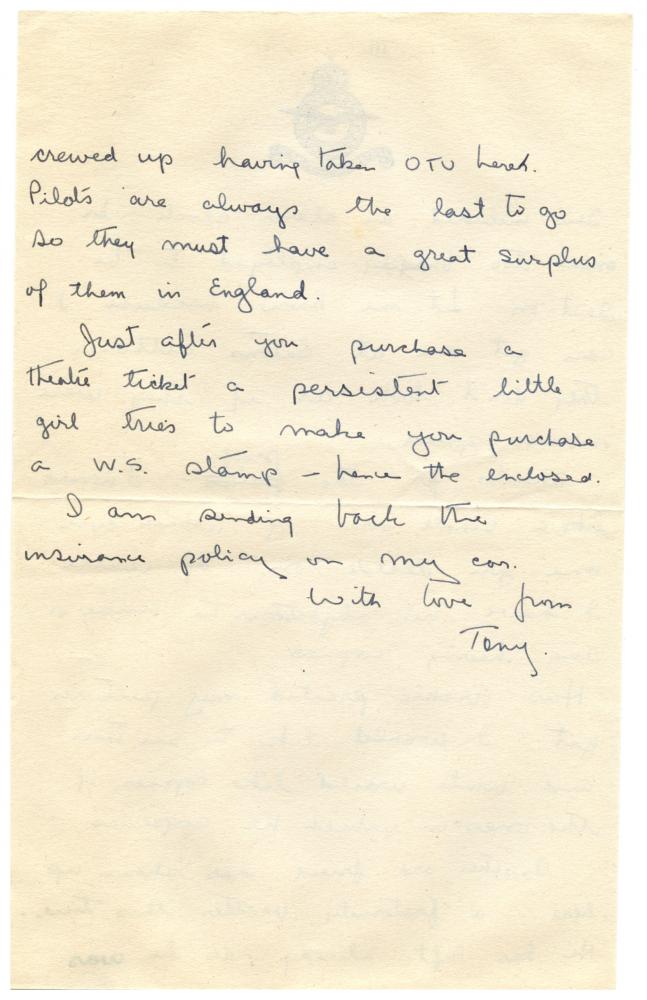 crewed up having taken OTU here.
Pilots are always the last to go
so they must have a great surplus
of them in England.
Just after you purchase a
theatre ticket a persistent little
girl tries to make you purchase
a W.S. stamp – hence the enclosed.
I am sending back the
insurance policy on my car.
With love from
Tony.